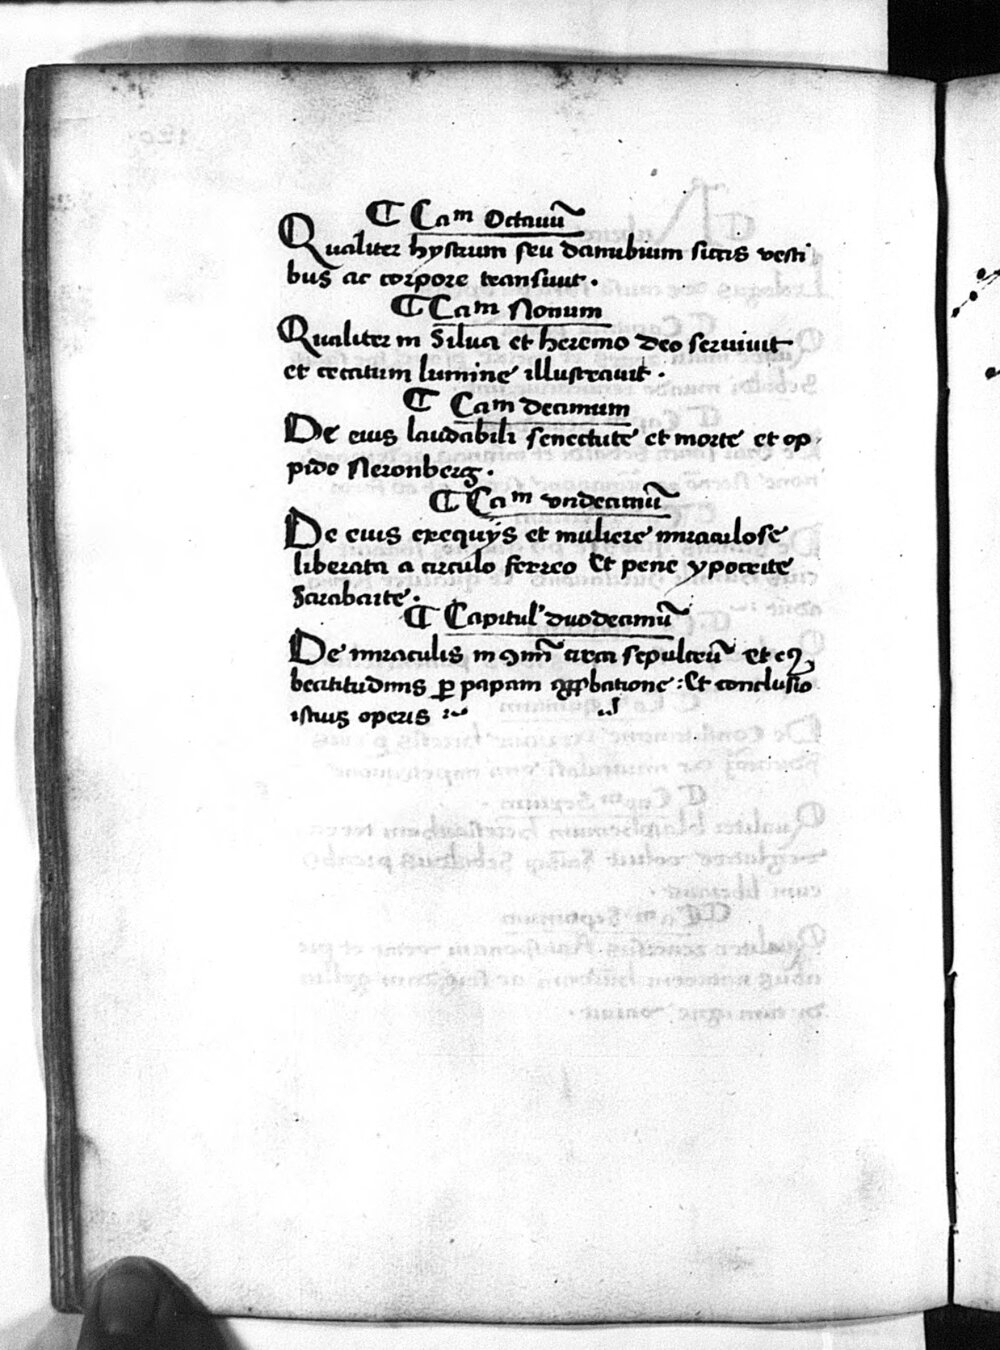 ¶ Cam Octauū
Qualiter hystrum seu danubium siccis vesti
bus ac corpore transiuit.
¶ Cam Nonum
Qualiter in Silua et heremo deo seruiuit
et cecatum lumine illustrauit.
¶ Cam decimum
De eius laudabili senectute et morte et op
pido Neronberg.
¶ Cam vndecimū
De eius exequijs et muliere miraculose
liberata a circulo ferreo Et pene ypocrite
Sarabaite.
¶ Capitul' duodecimū
De miraculis in circa sepulcrū Et
beatitudinis ꝑ papam Et conclusio
istius operis